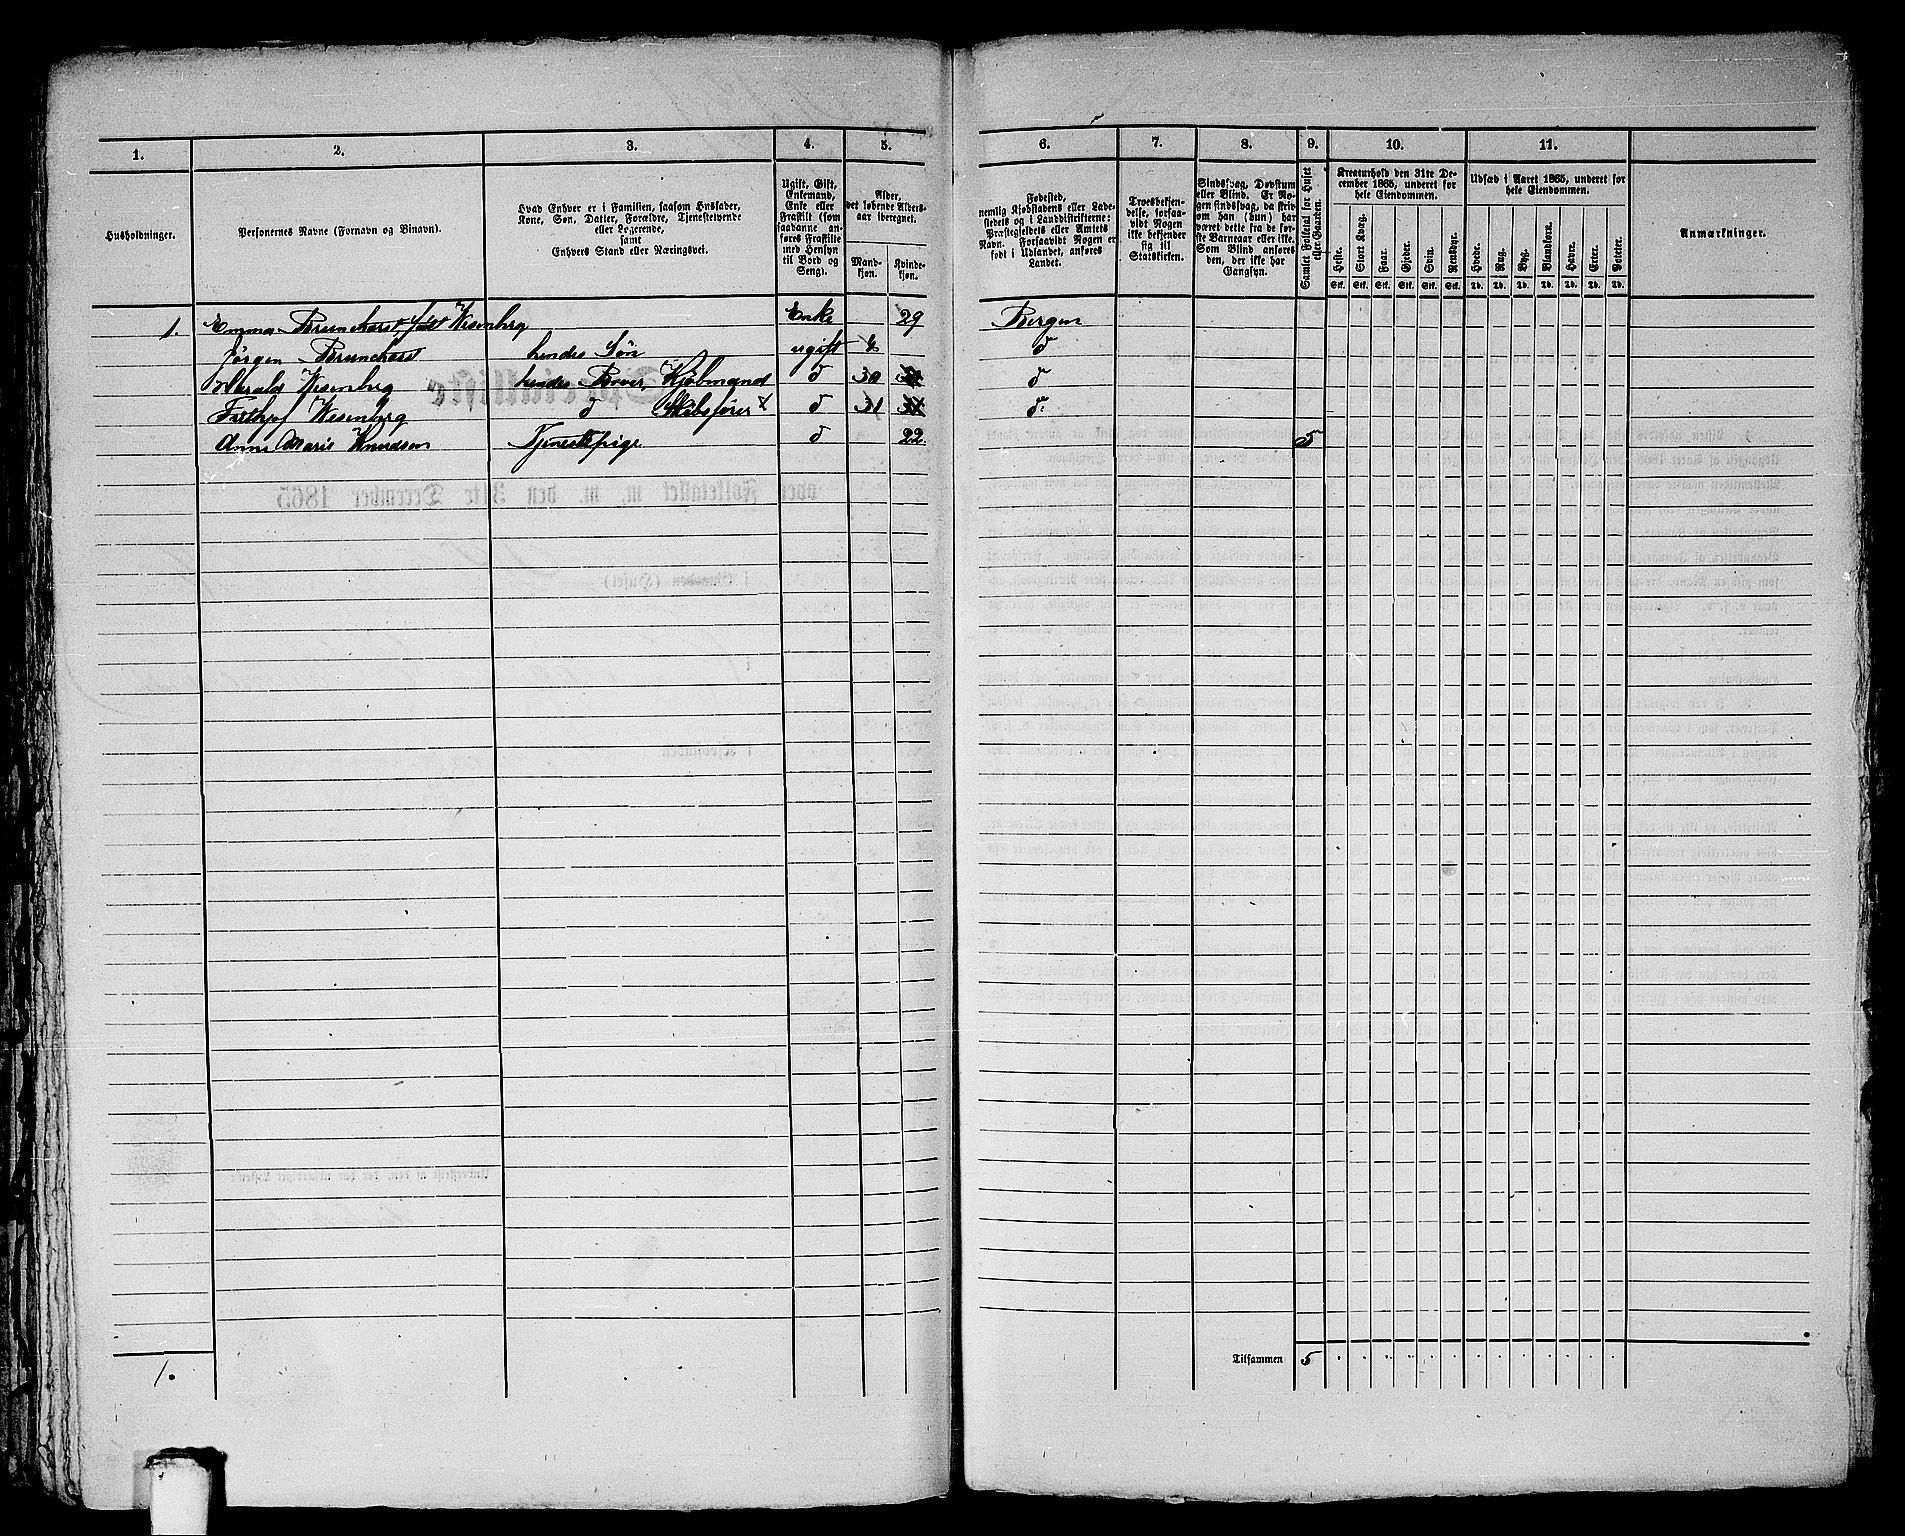 1. 2. 3. 4. 5. 6. 7. 8. 9. 10. 11.
Husholdninger.
Personernes Navne (Fornavn og Binavn).
Hvad Enhver er i Familien, saasom Husfader,
Kone, Søn, Datter, Forældre, Tjenestetyende
eller Logerende,
samt
Enhvers Stand eller Næringsvei.
Ugift, Gift,
Enkemand,
Enke eller
Fraskilt (som
saadanne an-
føres Fraskilte
med Hensyn
til Bord og
Seng).
Alder,
det løbende Alders-
aar iberegnet.
Mand-
kjøn.
Kvinde-
kjøn.
Fødested,
nemlig Kjøbstadens eller Lade-
stedets og i Landdistrikterne:
Præstegjeldets eller Amtets
Navn. Forsaavidt Nogen er
født i Udlandet, anføres
Landet.
Troesbekjen-
delse, forsaa-
vidt Nogen
ikke bekjender
sig til
Statskirken.
Sindssvag, Døvstum
eller Blind. Er No-
gen sindssvag, da skriv
om han (hun) har
været dette fra de før-
ste Barneaar eller ikke.
Som Blind anføres
den, der ikke har
Gangsyn.
Samlet Folketal for Huset
eller Gaarden.
Kreaturhold den 31te De-
cember 1865, underet for
hele Eiendommen.
Heste. Stort Kvæg. Faar. Gjeder. Svin. Rensdyr.
Stk. Stk. Stk. Stk. Stk. Stk.
Udsæd i Aaret 1865, underet for
hele Eiendommen.
Hvede. Rug. Byg. Blandkorn. Havre. Erter. Poteter.
Td. Td. Td. Td. Td. Td. Td.
Anmærkninger.
1. Emma Brunchorst født Wesenberg Enke 29 Bergen
Jørgen Brunchorst hendes Søn ugift d
Harald Wesenberg hendes Broer, Kjøbmand d 30 d
Frithjof Wesenberg d Skibsfører d 31 d:
Anne Marie Knudsen Tjenestepige d 22. 5
1. Tilsammen 5